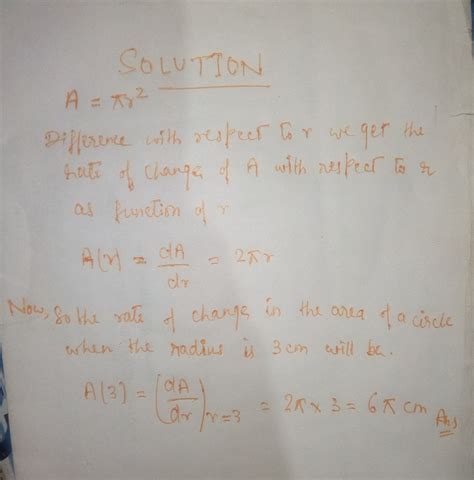 SOLUTION
A = πr²
Difference with respect to r we get the
rate of change of A with respect to r
as function of r
A(r) = dA/dr = 2πr
Now, So the rate of change in the area of a circle
when the radius is 3 cm will be.
A(3) = (dA/dr)r=3 = 2π x 3 = 6π cm Ans